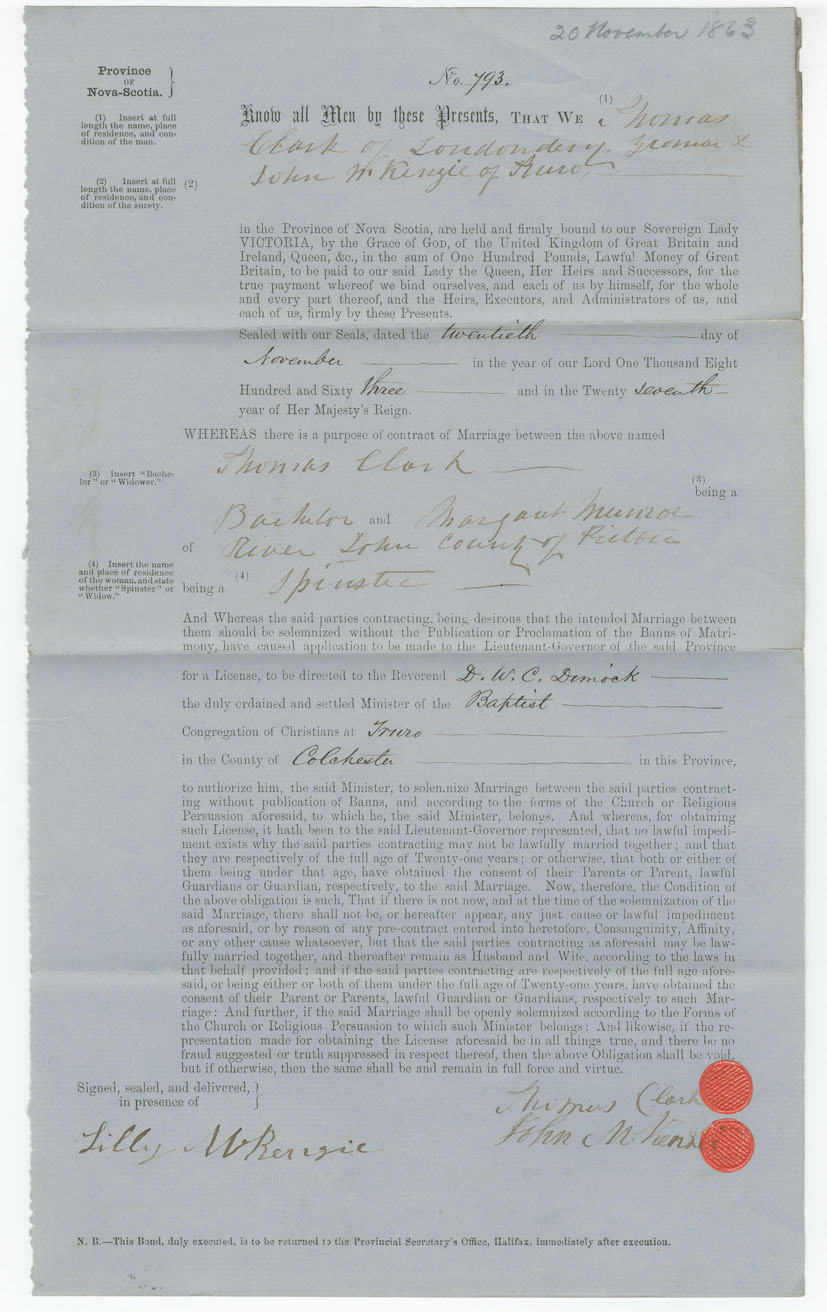 20 November 1863
No. 793.
Province
OF
Nova-Scotia.
(1) Insert at full
length the name, place
of residence, and con-
dition of the man.
(2) Insert at full
length the name, place
of residence, and con-
dition of the surety.
(1)
Know all Men by these Presents, THAT WE Thomas
Clark of Londondery, Yeoman &
(2) John McKenzie of Truro
in the Province of Nova Scotia, are held and firmly bound to our Sovereign Lady
VICTORIA, by the Grace of GOD, of the United Kingdom of Great Britain and
Ireland, Queen, &c., in the sum of One Hundred Pounds, Lawful Money of Great
Britain, to be paid to our said Lady the Queen, Her Heirs and Successors, for the
true payment whereof we bind ourselves, and each of us by himself, for the whole
and every part thereof, and the Heirs, Executors, and Administrators of us, and
each of us, firmly by these Presents.
Sealed with our Seals, dated the twentieth day of
November in the year of our Lord One Thousand Eight
Hundred and Sixty three and in the Twenty seventh
year of Her Majesty's Reign.
WHEREAS there is a purpose of contract of Marriage between the above named
Thomas Clark
(3) Insert "Bache-
lor" or "Widower."
(3)
being a
Bachelor and Margaret Munroe
of River John County of Pictou
(4) Insert the name
and place of residence
of the woman, and state
whether "Spinster" or
"Widow."
being a (4) Spinster
And Whereas the said parties contracting, being desirous that the intended Marriage between
them should be solemnized without the Publication or Proclamation of the Banns of Matri-
mony, have caused application to be made to the Lieutenant-Governor of the said Province
for a License, to be directed to the Reverend D. W. C. Dimock
the duly ordained and settled Minister of the Baptist
Congregation of Christians at Truro
in the County of Colchester in this Province,
to authorize him, the said Minister, to solemnize Marriage between the said parties contract-
ing without publication of Banns, and according to the forms of the Church or Religious
Persuasion aforesaid, to which he, the said Minister, belongs. And whereas, for obtaining
such License, it hath been to the said Lieutenant-Governor represented, that no lawful impedi-
ment exists why the said parties contracting may not be lawfully married together; and that
they are respectively of the full age of Twenty-one years; or otherwise, that both or either of
them being under that age, have obtained the consent of their Parents or Parent, lawful
Guardians or Guardian, respectively, to the said Marriage. Now, therefore, the Condition of
the above obligation is such, That if there is not now, and at the time of the solemnization of the
said Marriage, there shall not be, or hereafter appear, any just cause or lawful impediment
as aforesaid, or by reason of any pre-contract entered into heretofore, Consanguinity, Affinity,
or any other cause whatsoever, but that the said parties contracting as aforesaid may be law-
fully married together, and thereafter remain as Husband and Wife, according to the laws in
that behalf provided; and if the said parties contracting are respectively of the full age afore-
said, or being either or both of them under the full age of Twenty-one years, have obtained the
consent of their Parent or Parents, lawful Guardian or Guardians, respectively to such Mar-
riage: And further, if the said Marriage shall be openly solemnized according to the Forms of
the Church or Religious Persuasion to which such Minister belongs: And likewise, if the re-
presentation made for obtaining the License aforesaid be in all things true, and there be no
fraud suggested or truth suppressed in respect thereof, then the above Obligation shall be void,
but if otherwise, then the same shall be and remain in full force and virtue.
Signed, sealed, and delivered,
in presence of
Thomas Clark
John McKenzie
Lilly McKenzie
N. B.—This Bond, duly executed, is to be returned to the Provincial Secretary's Office, Halifax, immediately after execution.